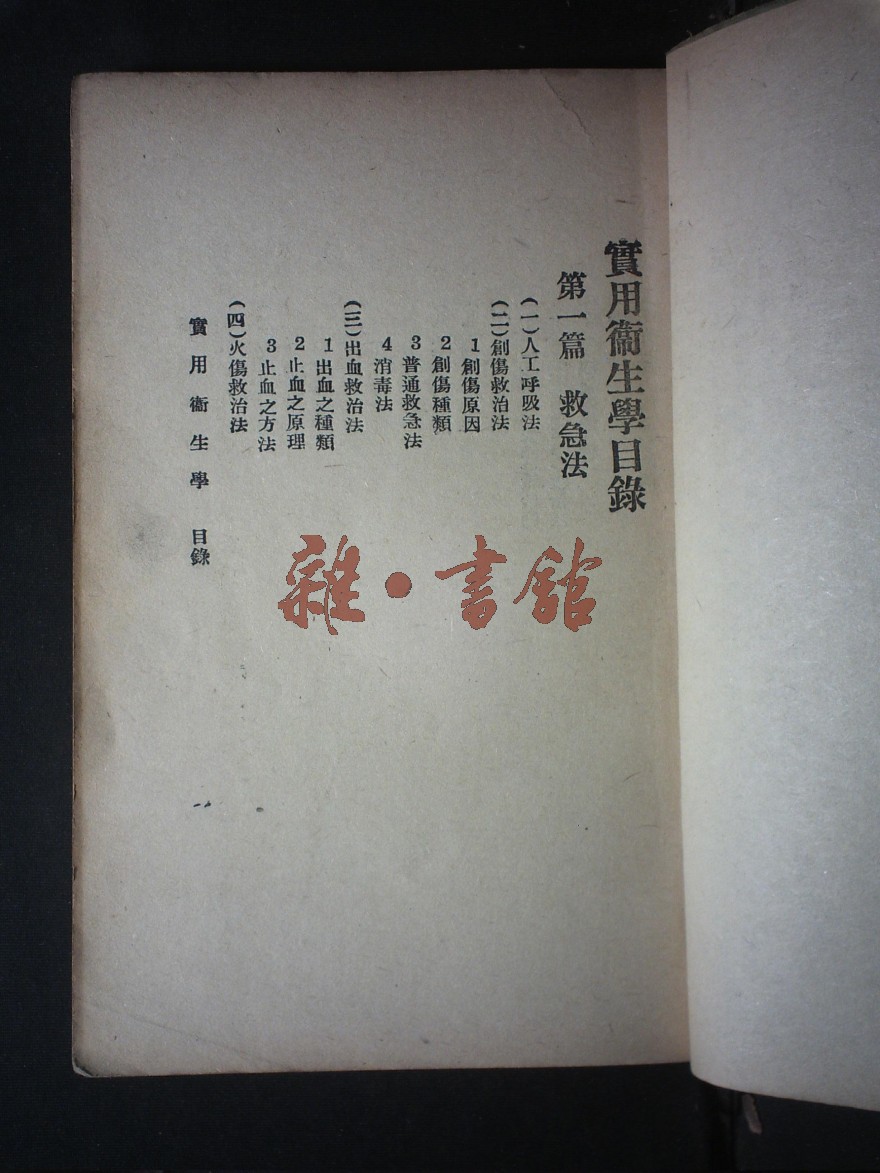 實用衞生學目錄
第一篇 救急法
(一)人工呼吸法
(二)創傷救治法
1 創傷原因
2 創傷種類
3 普通救急法
4 消毒法
(三)出血救治法
1 出血之種類
2 止血之原理
3 止血之方法
(四)火傷救治法
實用衞生學 目錄
一
雜·書館